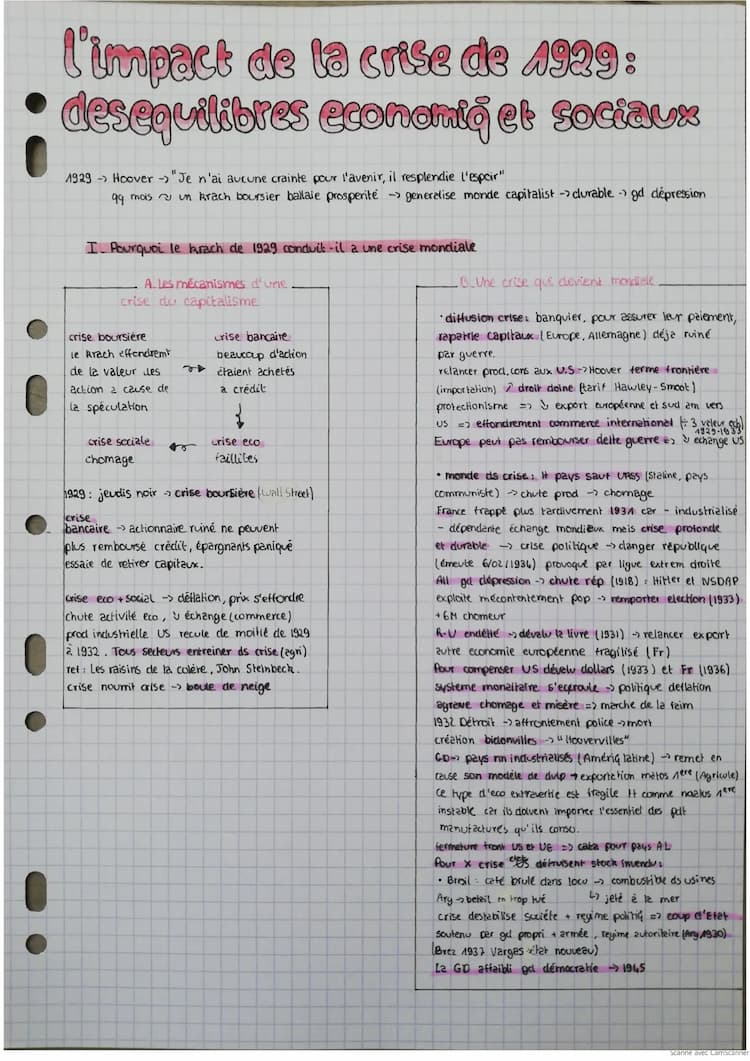 L'impact de la crise de 1929 :
desequilibres economiq̄ et sociaux
1929 -> Hoover -> "Je n'ai aucune crainte pour l'avenir, il resplendie l'espoir"
qq mois un krach boursier ballaie prosperité -> generalise monde capitalist -> durable -> gd dépression
I_ Pourquoi le krach de 1929 conduit-il a une crise mondiale
A. Les mécanismes d'une
crise du capitalisme
crise boursière
le krach effendremt
de la valeur des
action a cause de
la spéculation
crise bancaire
beaucoup d'action
étaient achetés
a crédit
crise sociale
chomage
crise eco
faillites
1929 : jeudis noir -> crise boursière (Wall Street)
crise
bancaire -> actionnaire ruiné ne peuvent
plus remboursé crédit, épargnants paniqué
essaie de retirer capitaux.
Crise eco + social -> déflation, prix s'effondre
chute activité eco, ↓ échange (commerce)
prod industrielle US recule de moitié de 1929
à 1932. Tous secteurs entreiner ds crise (agri)
ref : Les raisins de la colère, John Steinbeck.
Crise nourrit crise -> boule de neige
B. Une crise qui devient mondiale
• diffusion crise : banquier, pour assurer leur paiement,
rapatrie capitaux (Europe, Allemagne) déja ruiné
par guerre.
relancer prod, cons aux U.S -> Hoover ferme frontière
(importation) ↗ droit doine (tarif Hawley-Smoot)
protectionisme => ↓ export européenne et sud am vers
US => effondrement commerce international (÷ 3 valeur
1929-1933
Europe peut pas rembourser dette guerre => ↓ échange US
• monde ds crise : tt pays sauf URSS (Staline, pays
communiste) -> chute prod -> chomage
France frappé plus tardivement 1931 car - industrialisé
- dépendante échange mondieux mais crise profonde
et durable -> crise politique -> danger république
(émeute 6/02/1934) provoqué par ligue extrem droite
All gd dépression -> chute rép (1918) : Hitler et NSDAP
exploite mécontentement pop -> remporter election (1933)
+ 6M chomeur
R-U endetté -> dévalu la livre (1931) -> relancer export
autre economie européenne fragilisé (Fr)
Pour compenser US dévalu dollars (1933) et Fr (1936)
système monaitaire s'ecproule -> politique deflation
agrave chomage et misère => marche de la faim
1932 Détroit -> affrontement police -> mort
création bidonvilles -> "Hoovervilles"
GD -> pays nn industrialisés (Amériq̄ latine) -> remet en
cause son modèle de dvlp -> exportation matos 1ère (Agricole)
Ce type d'eco extravertie est fragile tt comme 1ère
instable car ils doivent importer l'essentiel des pdt
manufacturés qu'ils conso.
fermeture front US et UE => cata pour pays AL
Pour X crise détruisent stock invendu :
• Bresil : café brulé dans loco -> combustible ds usines
Arg -> betail en trop tué ↳ jeté à la mer
crise destabilise société + regime politiq̄ => coup d'Etat
soutenu par gd propri + armée, regime autoritaire (Arg 1930)
(Brez 1937 Vargas état nouveau)
La GD affaibli gd démocratie -> 1945
Scanné avec CamScanner